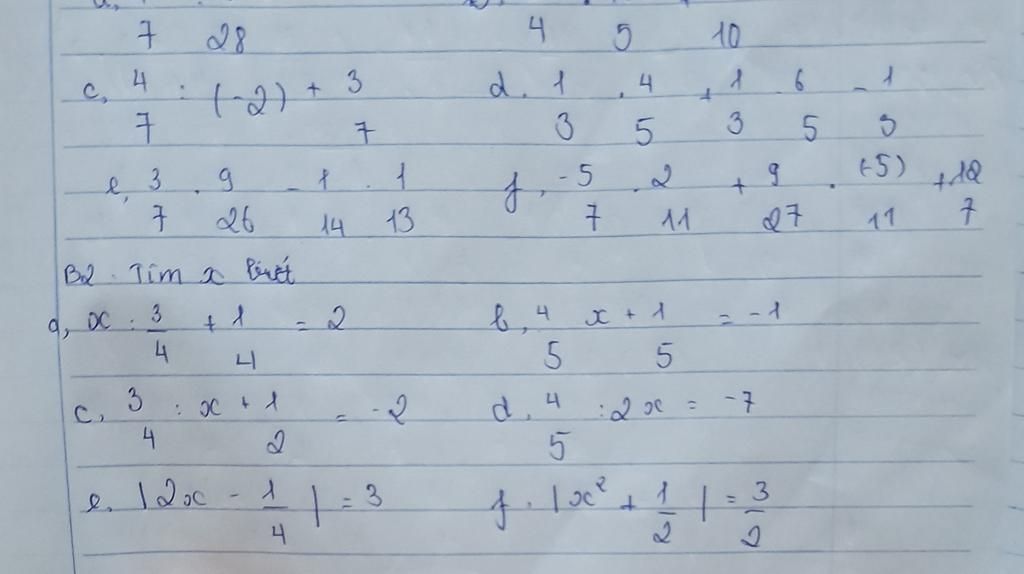 7 28 4 5 10
c, 4/7 : (-2) + 3/7 d. 1/3 . 4/5 + 1/3 . 6/5 - 1/3
e, 3/7 . 9/26 - 1/14 . 1/13 f, -5/7 . 2/11 + 9/27 . (-5)/11 + 12/7
B2. Tìm x biết
a, x : 3/4 + 1/4 = 2 b, 4/5 x + 1/5 = -1
c, 3/4 : x + 1/2 = -2 d. 4/5 : 2x = -7
e. |2x - 1/4| = 3 f. |x² + 1/2| = 3/2